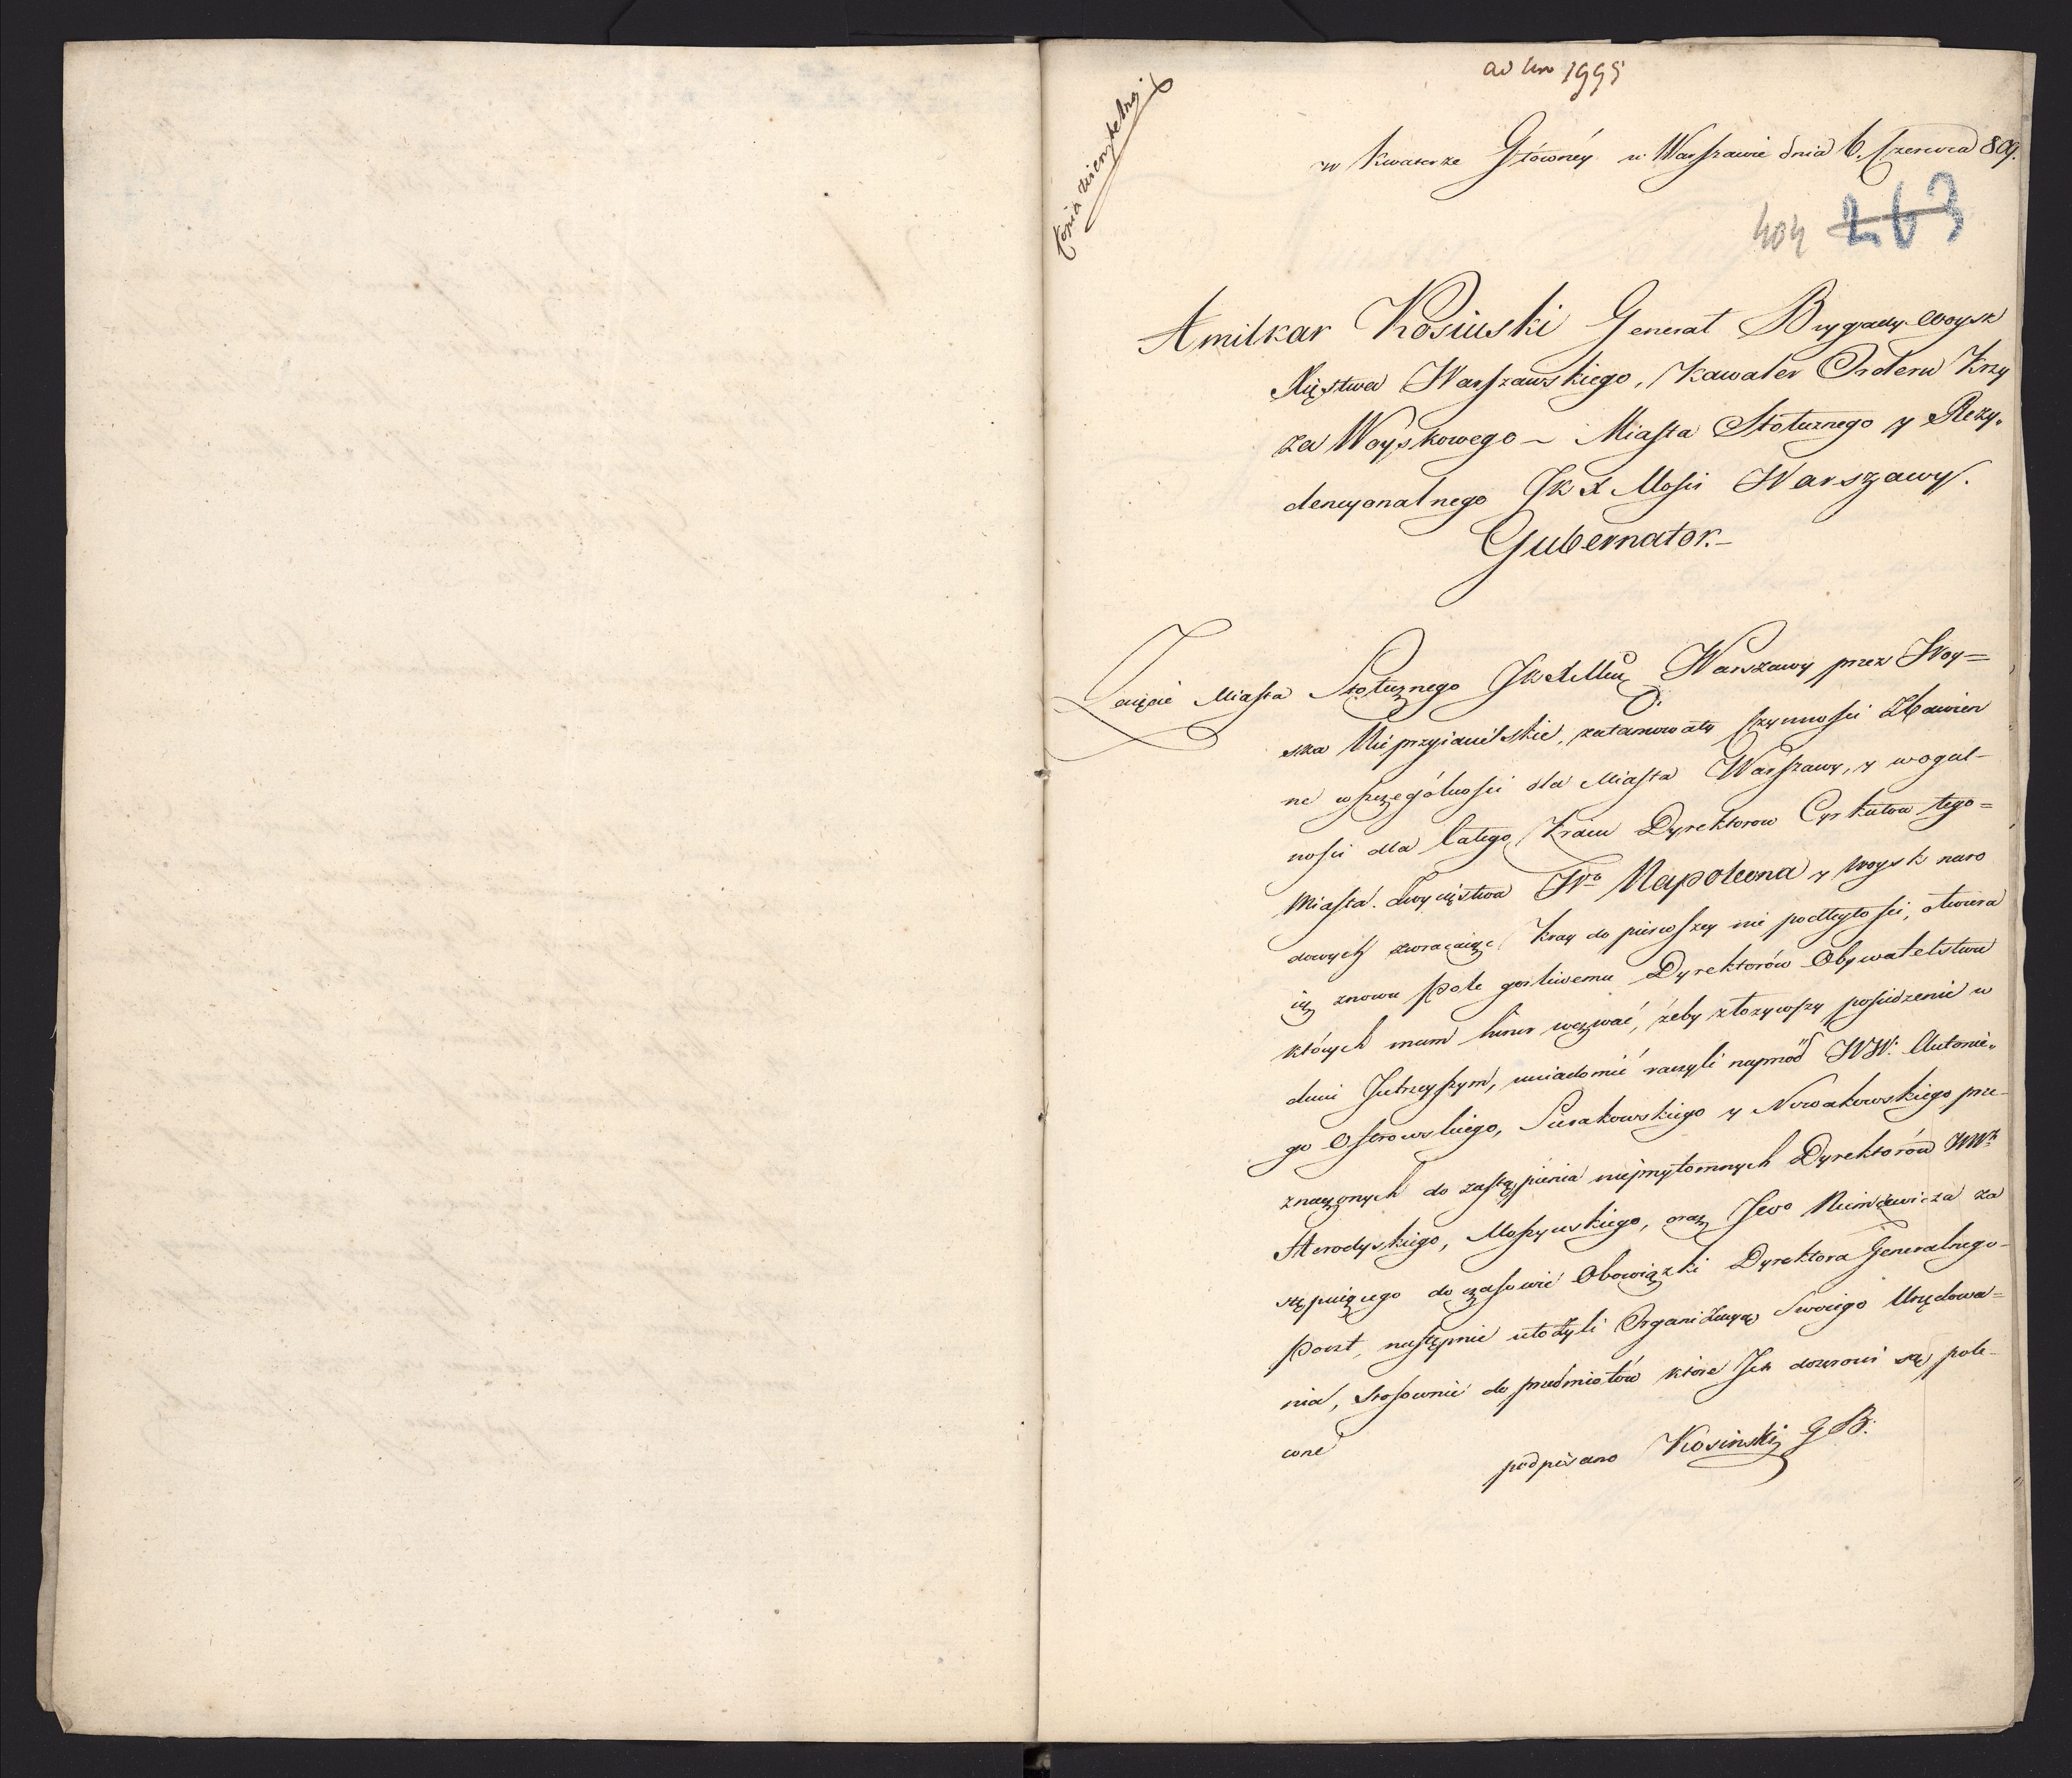 ad Nro 1995
Kopia wierzytelna
w Kwaterze Główney w Warszawie dnia 6. Czerwca 809.
404 263
Amilkar Kosinski Generał Brygady woysk
Xięstwa Warszawskiego, Kawaler Orderu Krzy
za Woyskowego – Miasta Stołecznego y Rezy-
dencyonalnego JK X Mości Warszawy.
Gubernator. –
Zaięcie Miasta Stołecznego JKXMci Warszawy przez Woy=
ska Nieprzyiacielskie, zatamowały czynności Zbawien
ne w szczególności dla Miasta Warszawy, y w ogul-
ności dla Całego Kraiu Dyrektorow Cyrkułow tego=
Miasta. Zwycięstwa Wo Napoleona y woysk naro
dowych zwracaiąc Kray do pierwszey nie podległości, otwiera
ią znowu Pole gorliwemu Dyrektorów Obywatelstwu
których mam honor wezwać, żeby złożywszy posiedzenie w
dniu Jutrzeyszym, uwiadomić raczyli naprzód WW. Antonie-
go Ostrowskiego, Sierakowskiego y Nowakowskiego prze-
znaczonych do zastąpienia nieprzytomnych Dyrektorów
Moszyńskiego, oraz Niemcewicza za
stępuiącego do czasowie Obowiązki Dyrektora Generalnego
Poczt, następnie ułożyli Organizacyą Swoiego Urzędowa=
nia, Stosownie do przedmiotów które Ich dozorowi są pole-
cone
podpisano Kosinski G B.